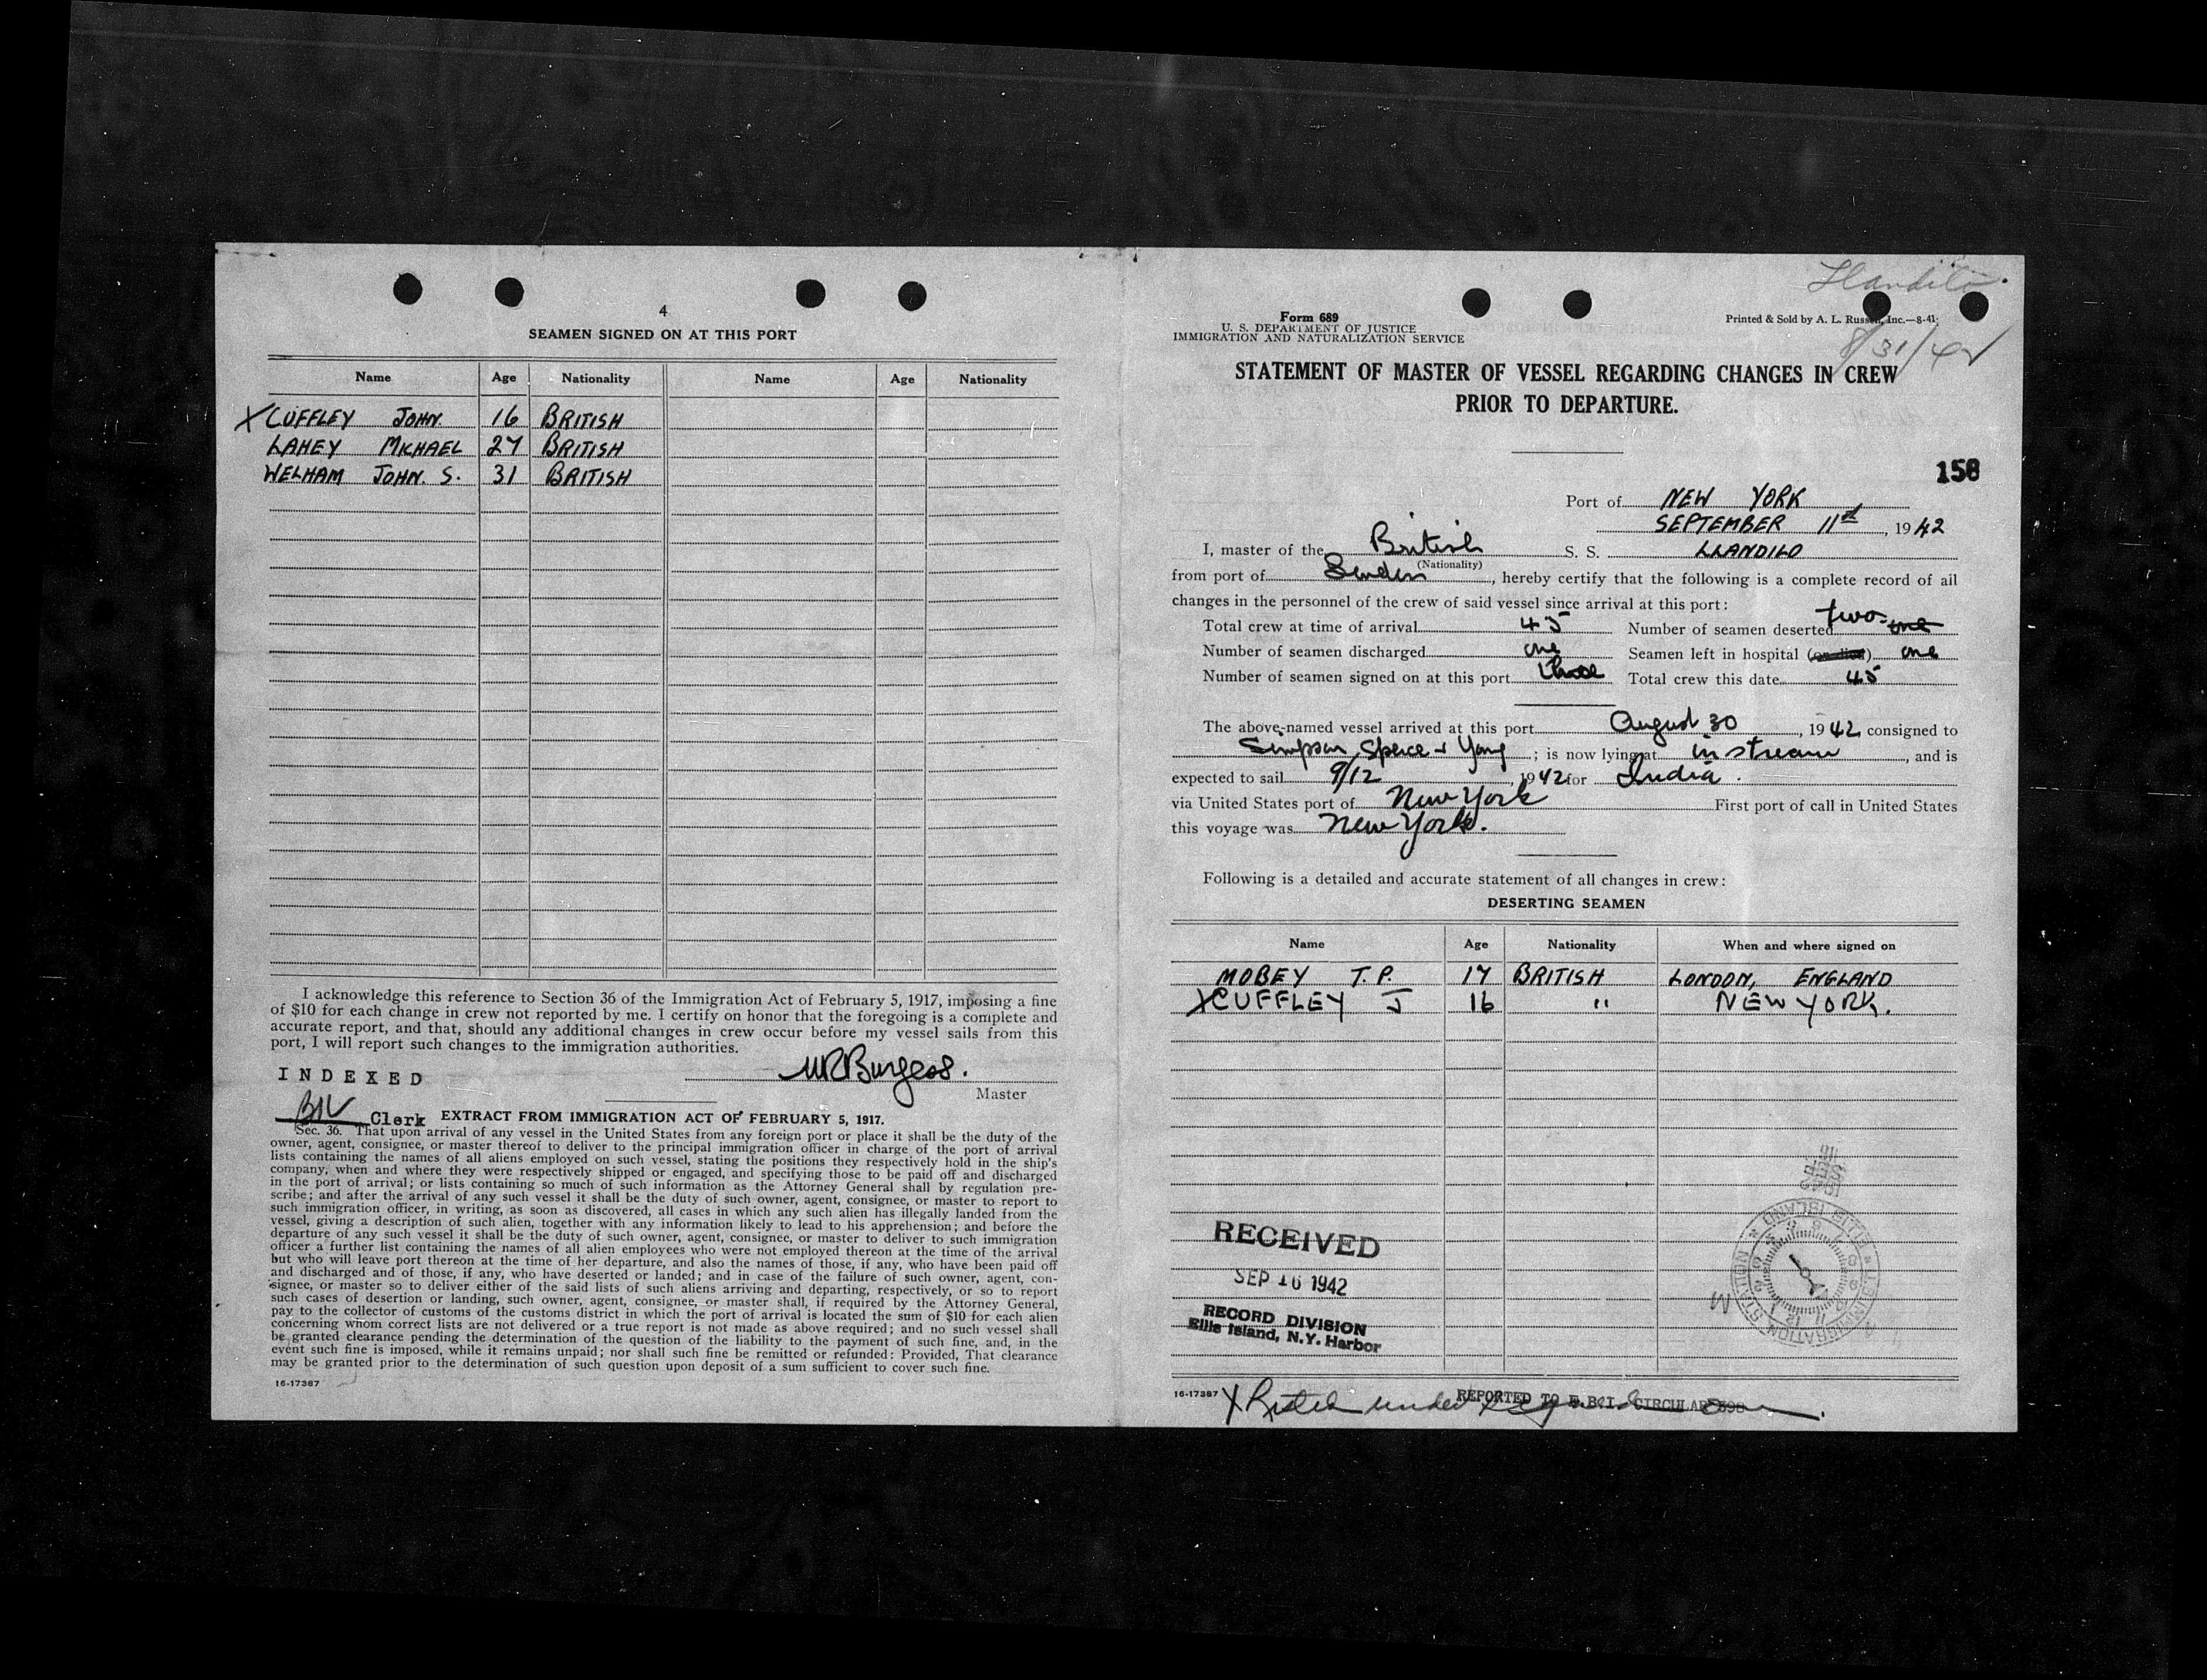 4
SEAMEN SIGNED ON AT THIS PORT
Name Age Nationality Name Age Nationality
X CUFFLEY JOHN. 16 BRITISH
LAHEY MICHAEL 27 BRITISH
WELHAM JOHN. S. 31 BRITISH
I acknowledge this reference to Section 36 of the Immigration Act of February 5, 1917, imposing a fine
of $10 for each change in crew not reported by me. I certify on honor that the foregoing is a complete and
accurate report, and that, should any additional changes in crew occur before my vessel sails from this
port, I will report such changes to the immigration authorities.
WRBurgess.
Master
INDEXED
Clerk
EXTRACT FROM IMMIGRATION ACT OF FEBRUARY 5, 1917.
Sec. 36. That upon arrival of any vessel in the United States from any foreign port or place it shall be the duty of the
owner, agent, consignee, or master thereof to deliver to the principal immigration officer in charge of the port of arrival
lists containing the names of all aliens employed on such vessel, stating the positions they respectively hold in the ship's
company, when and where they were respectively shipped or engaged, and specifying those to be paid off and discharged
in the port of arrival; or lists containing so much of such information as the Attorney General shall by regulation pre-
scribe; and after the arrival of any such vessel it shall be the duty of such owner, agent, consignee, or master to report to
such immigration officer, in writing, as soon as discovered, all cases in which any such alien has illegally landed from the
vessel, giving a description of such alien, together with any information likely to lead to his apprehension; and before the
departure of any such vessel it shall be the duty of such owner, agent, consignee, or master to deliver to such immigration
officer a further list containing the names of all alien employees who were not employed thereon at the time of the arrival
but who will leave port thereon at the time of her departure, and also the names of those, if any, who have been paid off
and discharged and of those, if any, who have deserted or landed; and in case of the failure of such owner, agent, con-
signee, or master so to deliver either of the said lists of such aliens arriving and departing, respectively, or so to report
such cases of desertion or landing, such owner, agent, consignee, or master shall, if required by the Attorney General,
pay to the collector of customs of the customs district in which the port of arrival is located the sum of $10 for each alien
concerning whom correct lists are not delivered or a true report is not made as above required; and no such vessel shall
be granted clearance pending the determination of the question of the liability to the payment of such fine, and, in the
event such fine is imposed, while it remains unpaid; nor shall such fine be remitted or refunded: Provided, That clearance
may be granted prior to the determination of such question upon deposit of a sum sufficient to cover such fine.
16-17387
Llandilo.
8/31/42
Form 689
U. S. DEPARTMENT OF JUSTICE
IMMIGRATION AND NATURALIZATION SERVICE
Printed & Sold by A. L. Russell, Inc.—8-41
STATEMENT OF MASTER OF VESSEL REGARDING CHANGES IN CREW
PRIOR TO DEPARTURE.
158
Port of NEW YORK
SEPTEMBER 11th, 1942
I, master of the British S. S. LLANDILO
(Nationality)
from port of, hereby certify that the following is a complete record of all
changes in the personnel of the crew of said vessel since arrival at this port:
Total crew at time of arrival 45 Number of seamen deserted two one
Number of seamen discharged one Seamen left in hospital (or died) one
Number of seamen signed on at this port three Total crew this date 45
The above-named vessel arrived at this port August 30, 1942 consigned to
Simpson, Spence & Young; is now lying at in stream, and is
expected to sail 9/12 1942 for India.
via United States port of New York First port of call in United States
this voyage was New York.
Following is a detailed and accurate statement of all changes in crew:
DESERTING SEAMEN
Name Age Nationality When and where signed on
MOBEY T.P. 17 BRITISH LONDON, ENGLAND
X CUFFLEY J 16 " NEW YORK.
RECEIVED
SEP 16 1942
RECORD DIVISION
Ellis Island, N.Y. Harbor
1942
SEP
16
ELLIS ISLAND
U.S. IMMIGRATION STATION
M
16-17387
X British under
REPORTED TO F.B.I. CIRCULAR 598